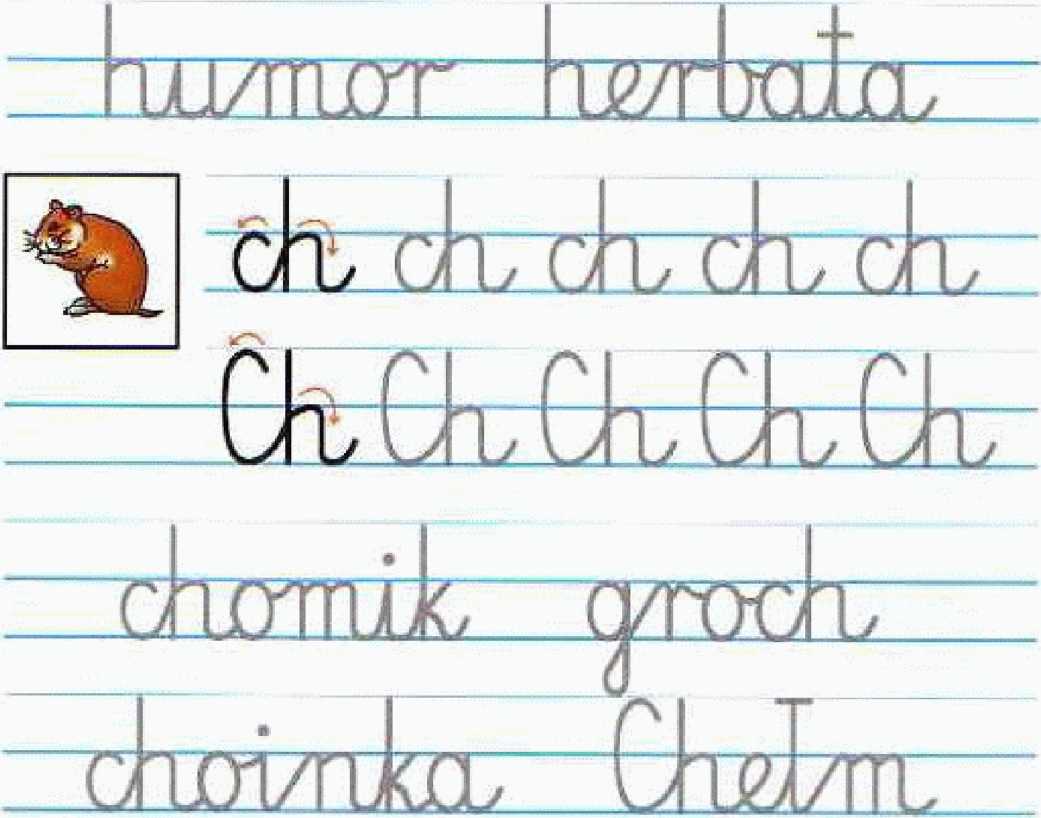 humor herbata
ch ch ch ch ch
Ch Ch Ch Ch Ch
chomik groch
choinka Chełm